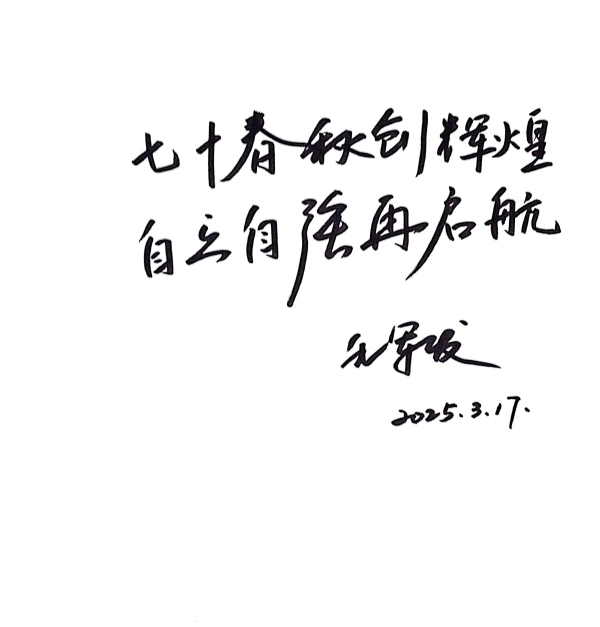 七十春秋创辉煌
自立自强再启航
毛军发
2025.3.17.